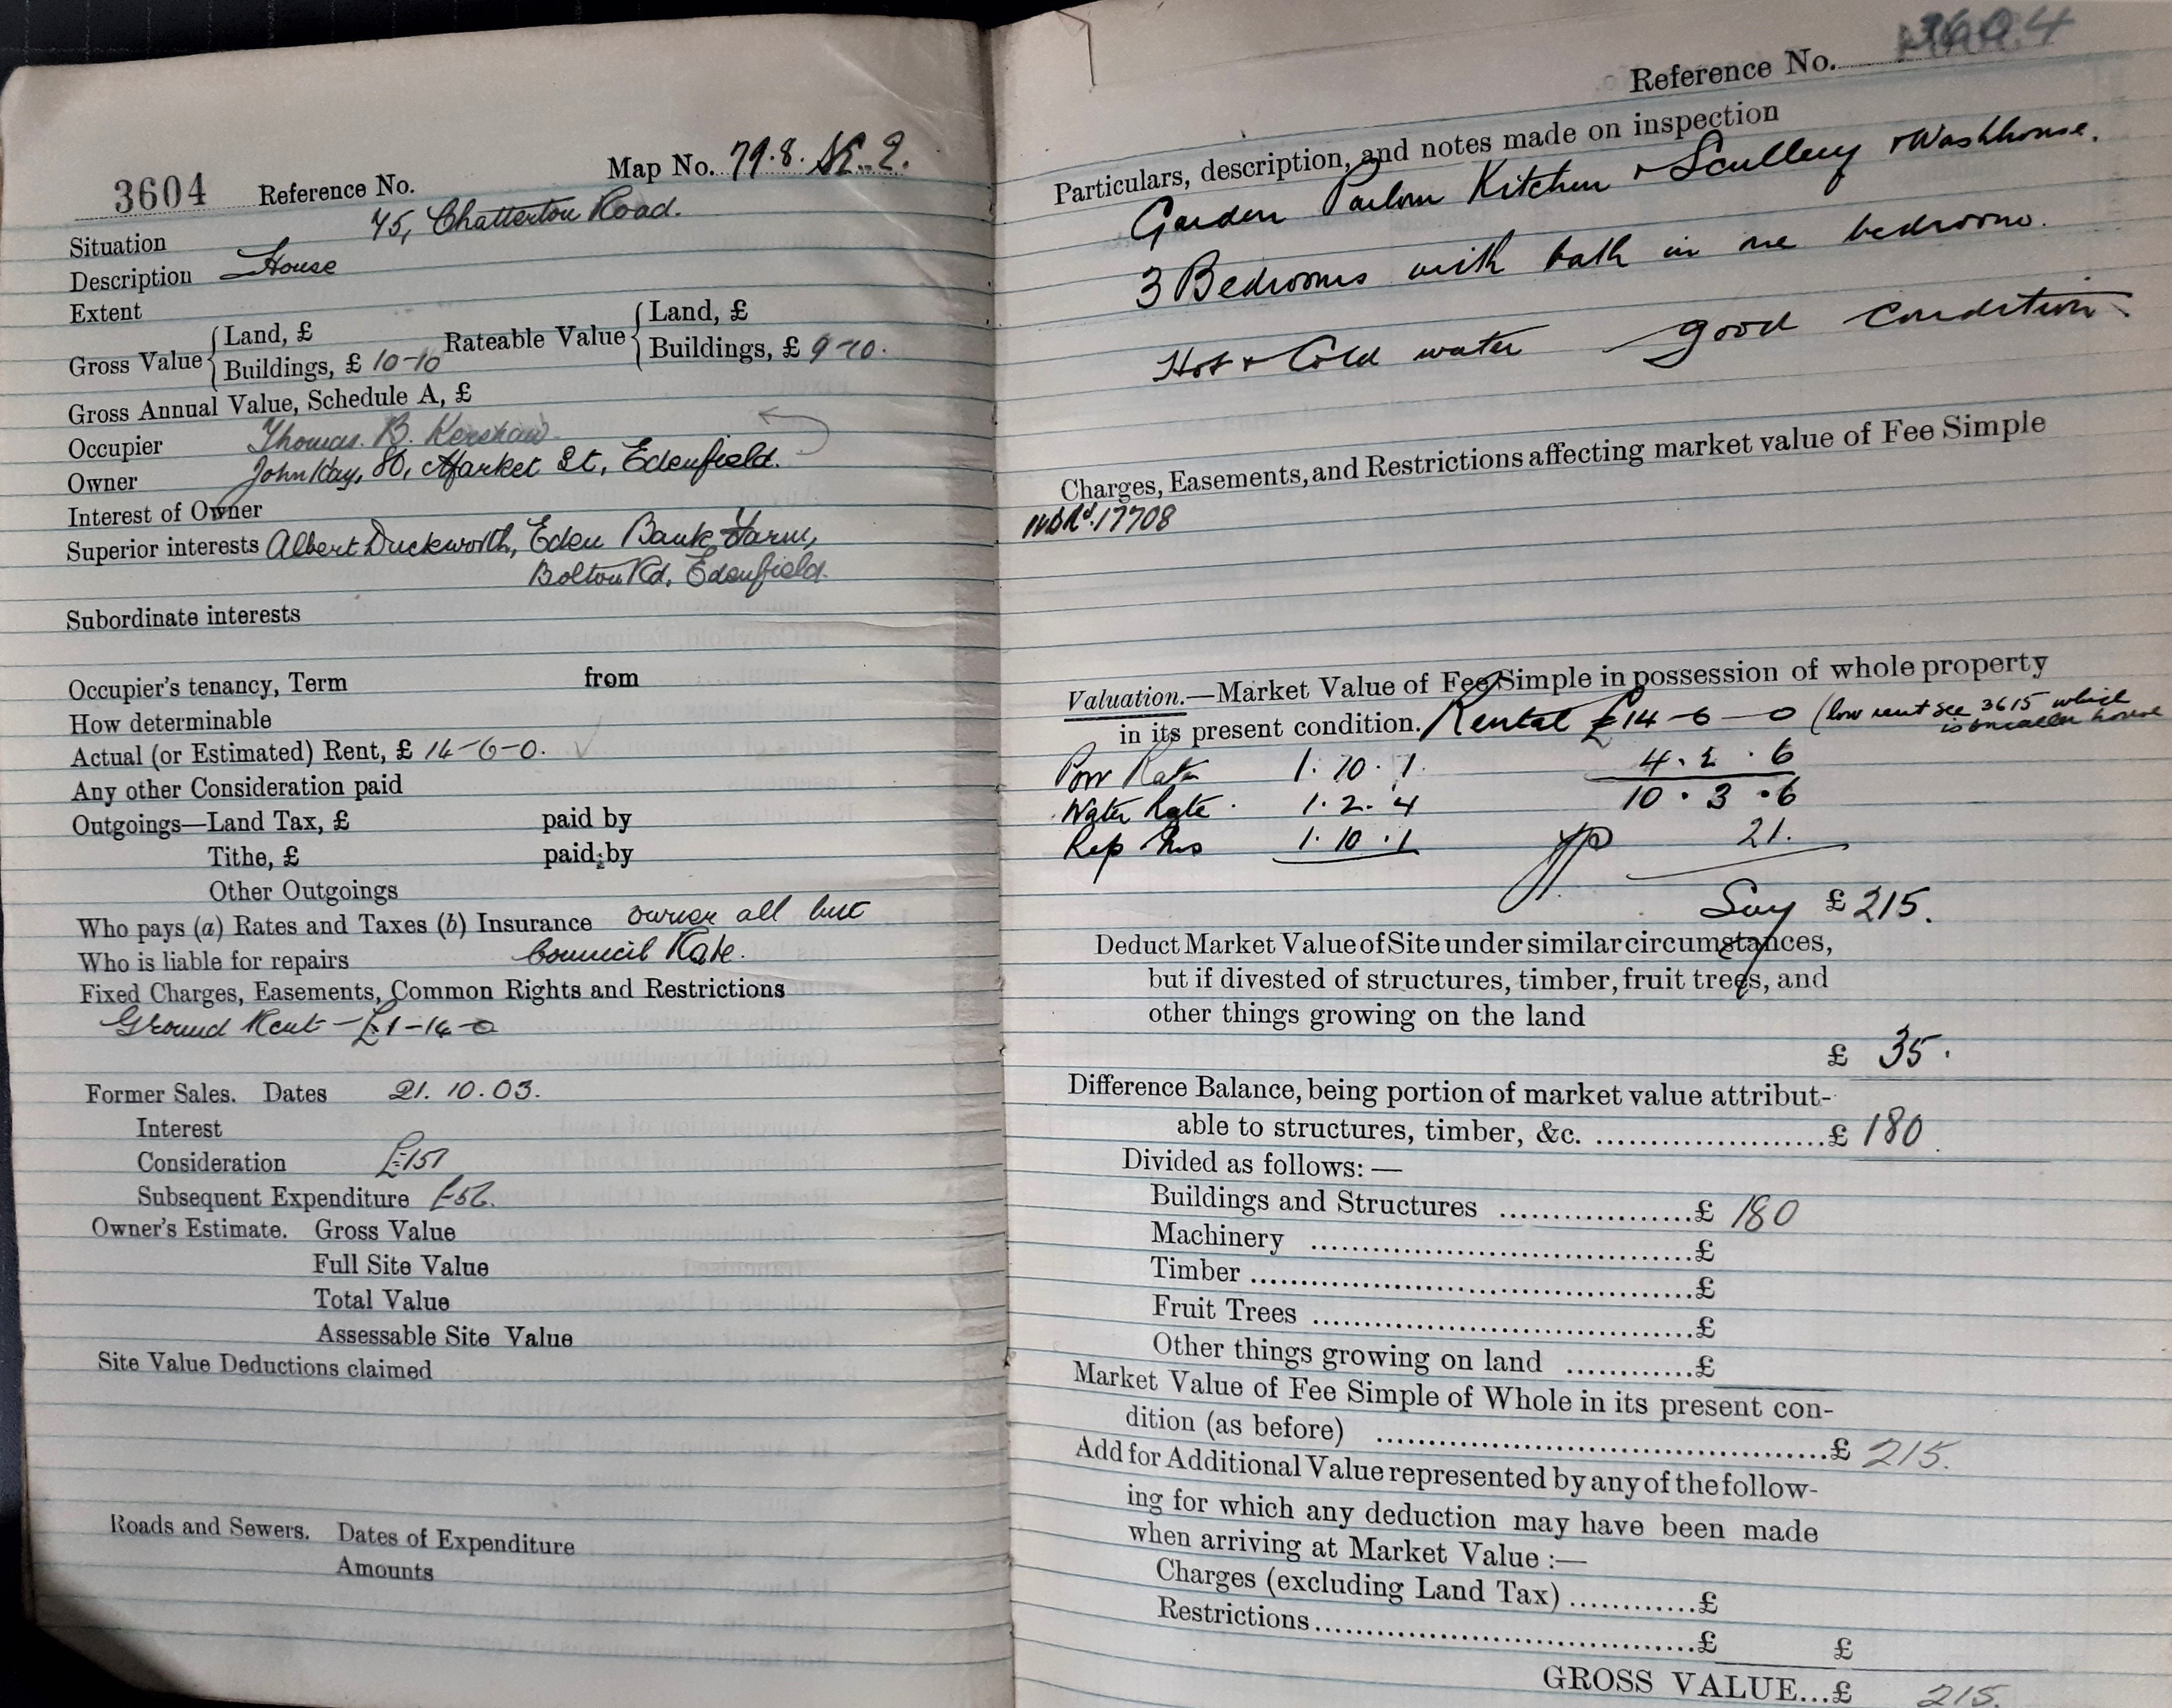 3604 Reference No. Map No. 79.8. SE. 2.
Situation 45, Chatterton Road.
Description House
Extent
Gross Value { Land, £ Rateable Value { Land, £
Buildings, £ 10-10 Buildings, £ 9-10.
Gross Annual Value, Schedule A, £
Occupier Thomas. B. Kershaw
Owner John Kay, 80, Market St, Edenfield.
Interest of Owner
Superior interests Albert Duckworth, Eden Bank Farm,
Bolton Rd, Edenfield.
Subordinate interests
Occupier's tenancy, Term from
How determinable
Actual (or Estimated) Rent, £ 14-6-0. ✓
Any other Consideration paid
Outgoings—Land Tax, £ paid by
Tithe, £ paid by
Other Outgoings
Who pays (a) Rates and Taxes (b) Insurance owner all but
Who is liable for repairs Council Rate.
Fixed Charges, Easements, Common Rights and Restrictions
Ground Rent — £1-14-0
Former Sales. Dates 21. 10. 03.
Interest
Consideration £157
Subsequent Expenditure £56.
Owner's Estimate. Gross Value
Full Site Value
Total Value
Assessable Site Value
Site Value Deductions claimed
Roads and Sewers. Dates of Expenditure
Amounts
3604
Reference No.
Particulars, description, and notes made on inspection
Garden Parlour Kitchen + Scullery + Washhouse.
3 Bedrooms with bath in one bedroom.
Hot + Cold water good condition
Charges, Easements, and Restrictions affecting market value of Fee Simple
17708
Valuation.—Market Value of Fee Simple in possession of whole property
in its present condition. Rental £14-6-0 (low rent see 3615 which
is smaller house
Poor Rate 1. 10. 1. 4. 2. 6
Water Rate. 1. 2. 4 10. 3. 6
Rep Ins 1. 10. 1 YP 21.
Say £ 215.
Deduct Market Value of Site under similar circumstances,
but if divested of structures, timber, fruit trees, and
other things growing on the land
£ 35.
Difference Balance, being portion of market value attribut-
able to structures, timber, &c. ........................£ 180.
Divided as follows:—
Buildings and Structures ....................£ 180
Machinery ........................................£
Timber ................................................£
Fruit Trees ........................................£
Other things growing on land ............£
Market Value of Fee Simple of Whole in its present con-
dition (as before) ................................................£ 215.
Add for Additional Value represented by any of the follow-
ing for which any deduction may have been made
when arriving at Market Value :—
Charges (excluding Land Tax) ............£
Restrictions ........................................£ £
GROSS VALUE...£ 215.